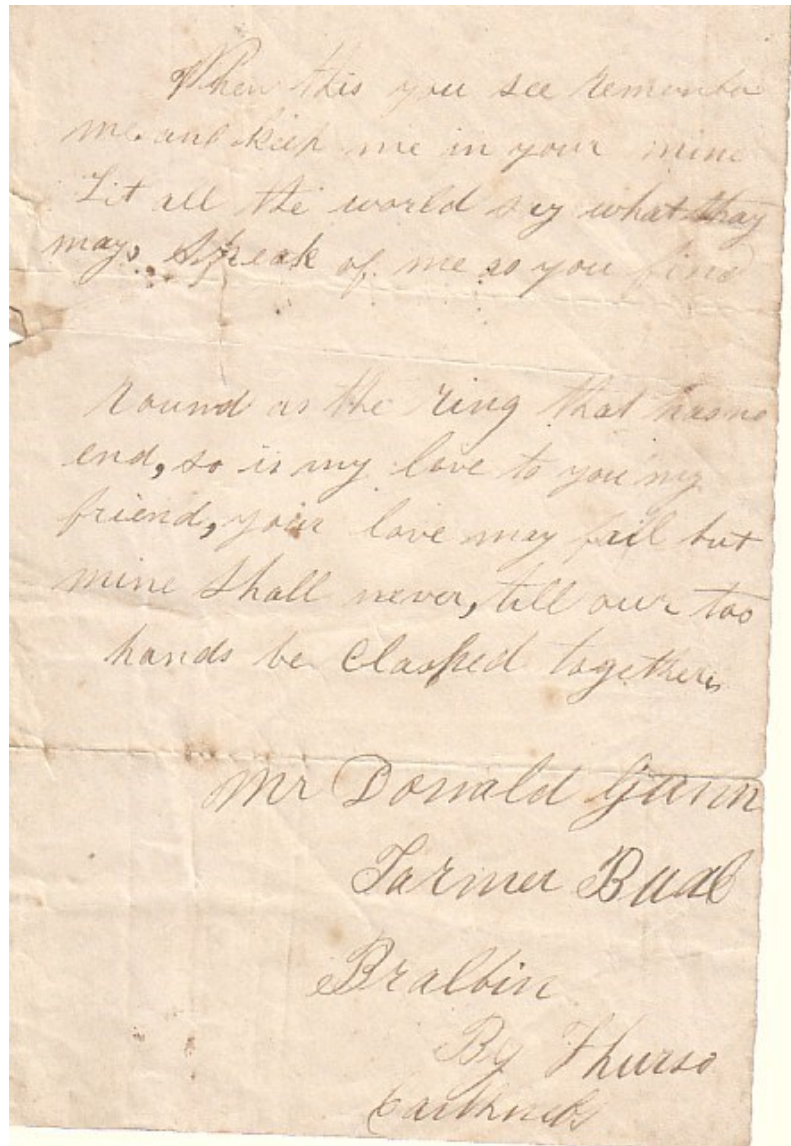 When this you see remember
me and keep me in your mine
Lit all the world say what thay
may, Speak of me as you find
round as the ring that has no
end, so is my love to you my
friend, your love may fail but
mine shall never, till our too
hands be Clasped together,
Mr Donald Gunn
Farmer
Bralbin
By Thurso
Caithness